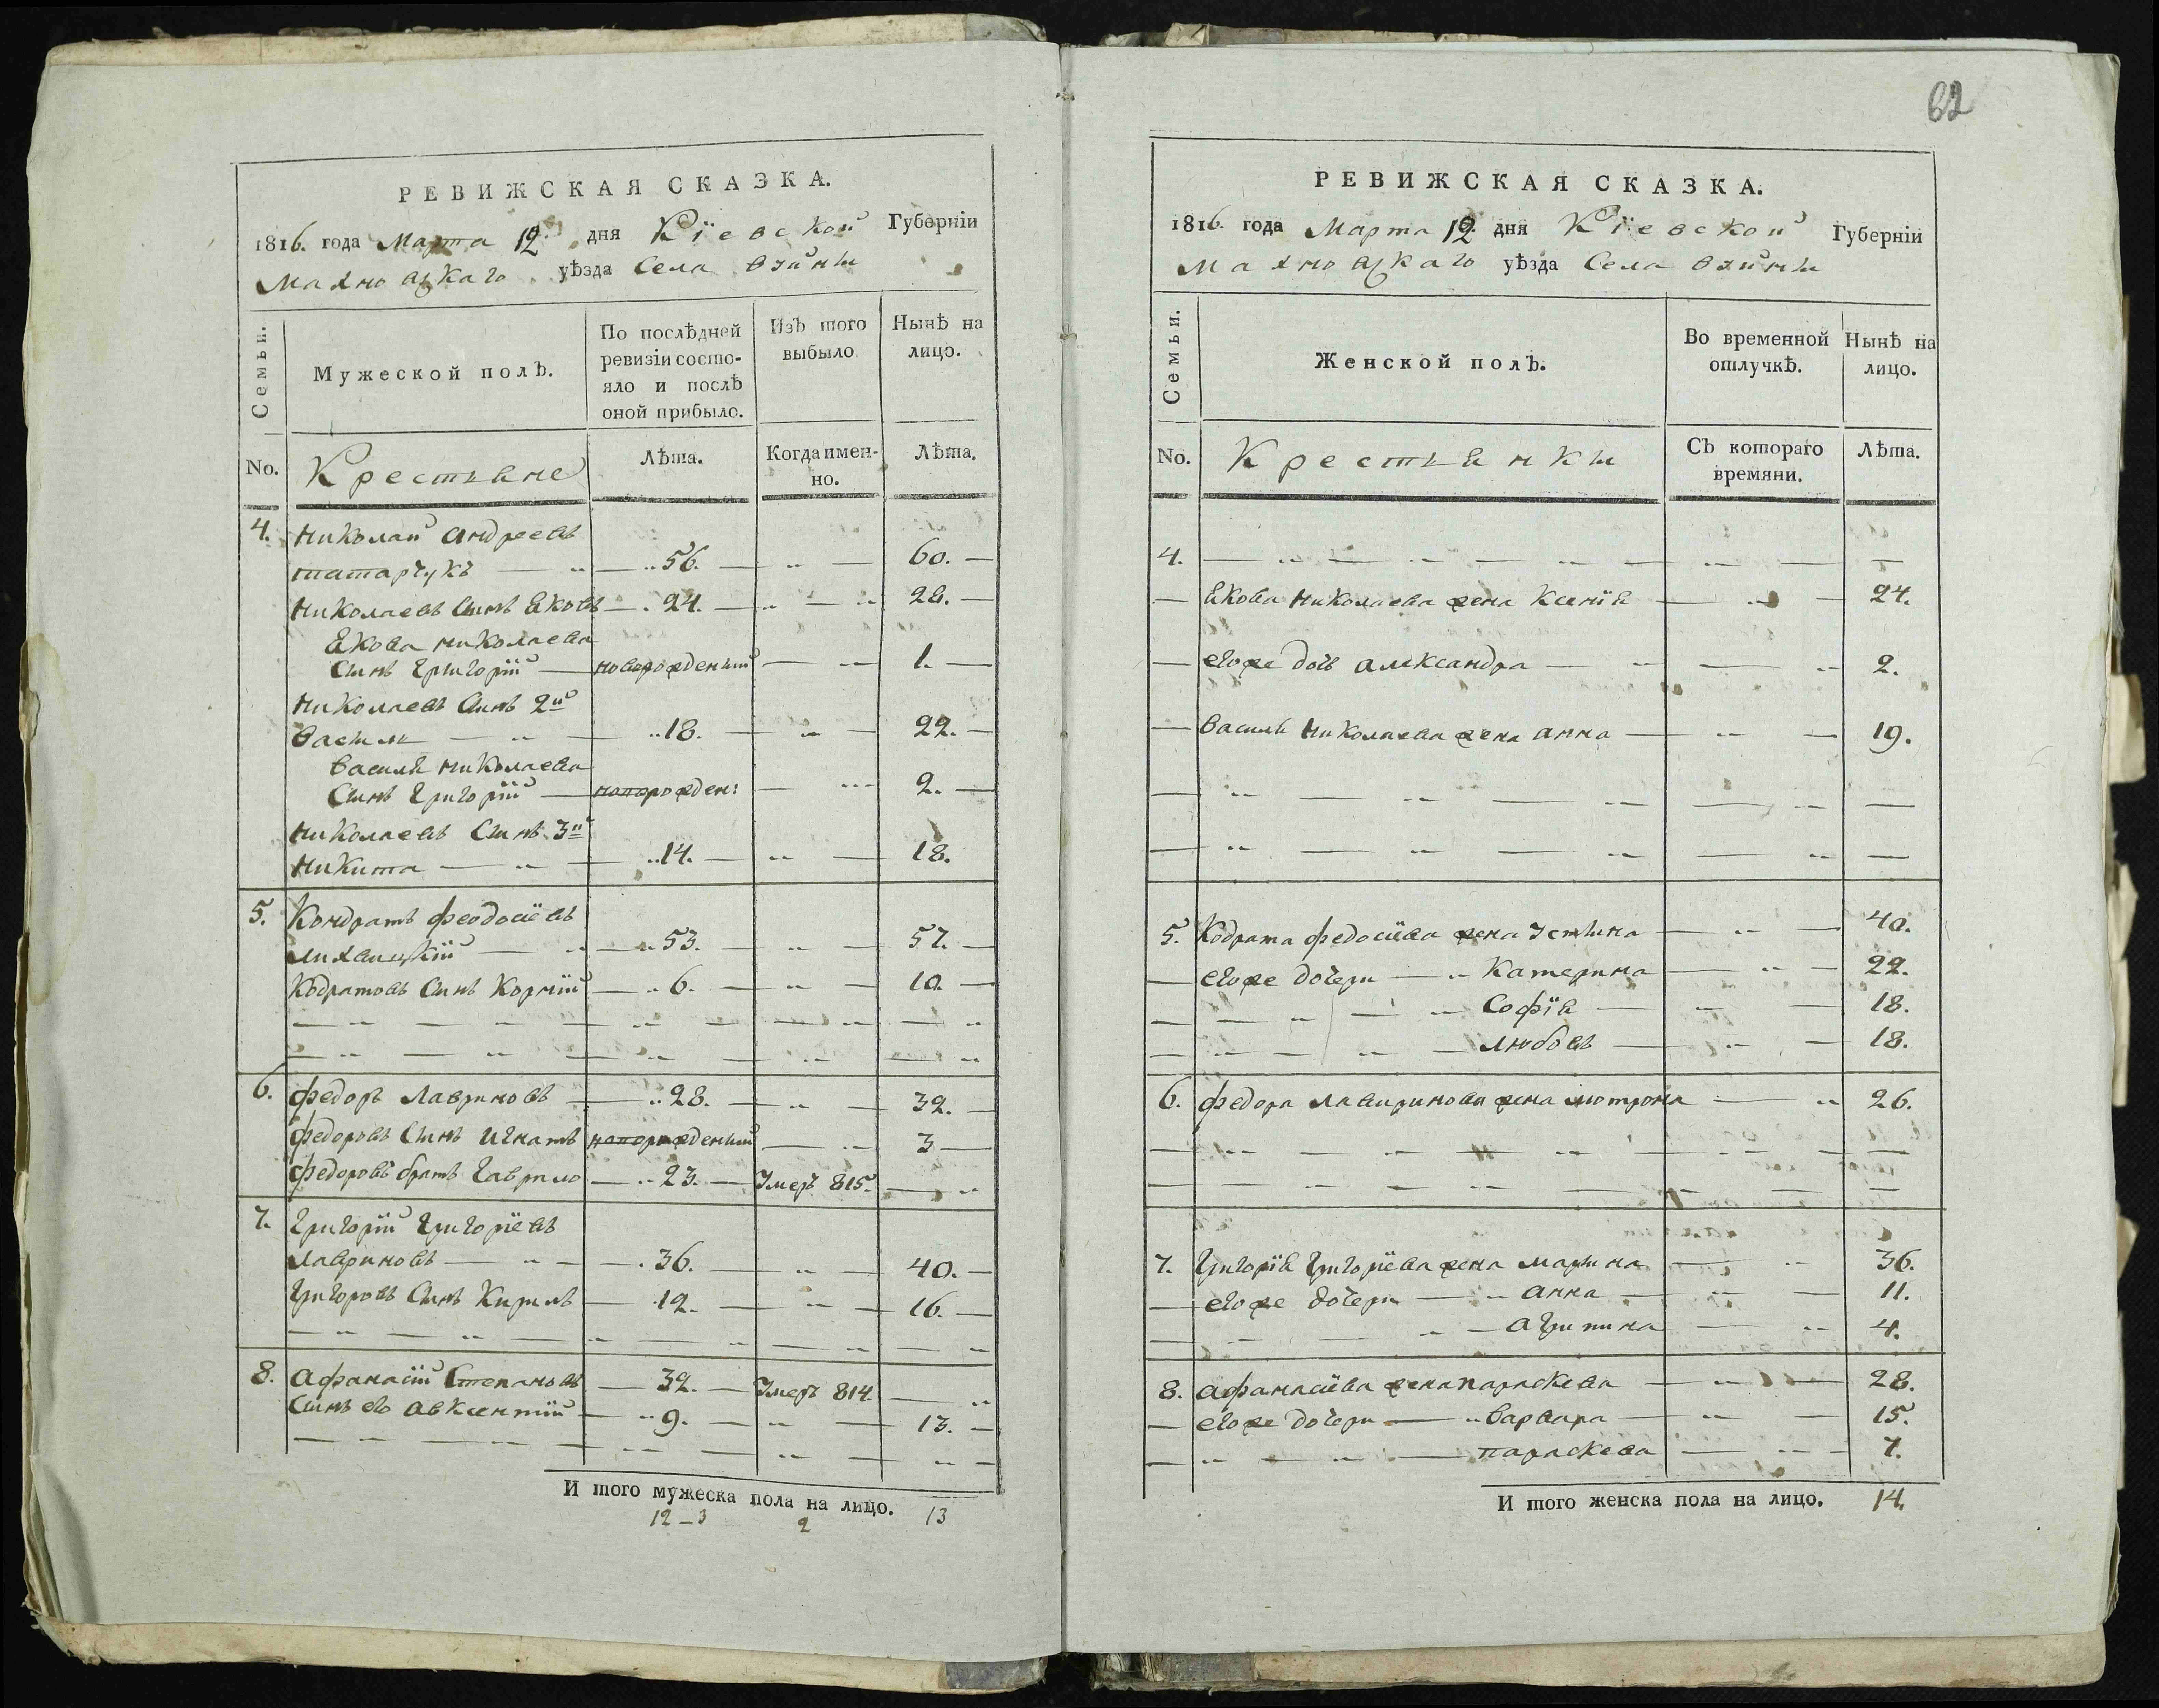 62
РЕВИЖСКАЯ СКАЗКА.
1816. года Марта 12 дня Кїевской Губернїи
Махновцкаго уѣзда Села
Семьи.
Мужеской полъ.
По послѣдней ревизїи состояло и послѣ оной прибыло.
Изъ того выбыло
Нынѣ на лицо.
No.
Крестьяне
Лѣта.
Когда именно.
Лѣта.
4. Николай андреевъ
татарчукъ — 56. — 60. —
Николаевъ Синъ Яковъ — 24. — 28. —
Якова николаева
Синъ Григорїй — новорожденний — 1. —
Николаевъ Синъ 2й
Василь — 18. — 22. —
Василя николаева
Синъ Григорїй — новорожден: — 2. —
Николаевъ Синъ 3й
Никита — 14. — 18.
5. Кондратъ феодосїевъ
— 53. — 57. —
Кодратовъ Синъ Корнїй — 6. — 10. —
6. федоръ Лавриновъ — 28. — 32. —
федоровъ Синъ Игнатъ новорожденний — 3 —
федоровъ братъ Гаврило — 23. — Умеръ 815. —
7. Григорїй Григорїевъ
Лавриновъ — 36. — 40. —
Григоровъ Синъ Кирилъ — 12. — 16. —
8. Афанасїй Степановъ — 32. — Умеръ 814. —
Синъ его авксентїй — 9. — 13. —
И того мужеска пола на лицо.
12 – 3 2 13
РЕВИЖСКАЯ СКАЗКА.
1816. года Марта 12 дня Кїевской Губернїи
Махновцкаго уѣзда Села
Семьи.
Женской полъ.
Во временной отлучкѣ.
Нынѣ на лицо.
No.
Крестьянки
Съ котораго времяни.
Лѣта.
4. —
— Якова Николаева жена Ксенїя — 24.
— егоже дочь александра — 2.
— Василя Николаева жена анна — 19.
5. Кодрата федосїева жена Устина — 40.
— егоже дочери — Катерина — 22.
— Софїя — 18.
— Любовъ — 18.
6. федора лавринова жена мотрона — 26.
7. Григорїя Григорїева жена марина — 36.
— егоже дочери — анна — 11.
— агрипина — 4.
8. афанасїева жена параскева — 28.
— егоже дочери — варвара — 15.
— параскева — 7.
И того женска пола на лицо. 14.